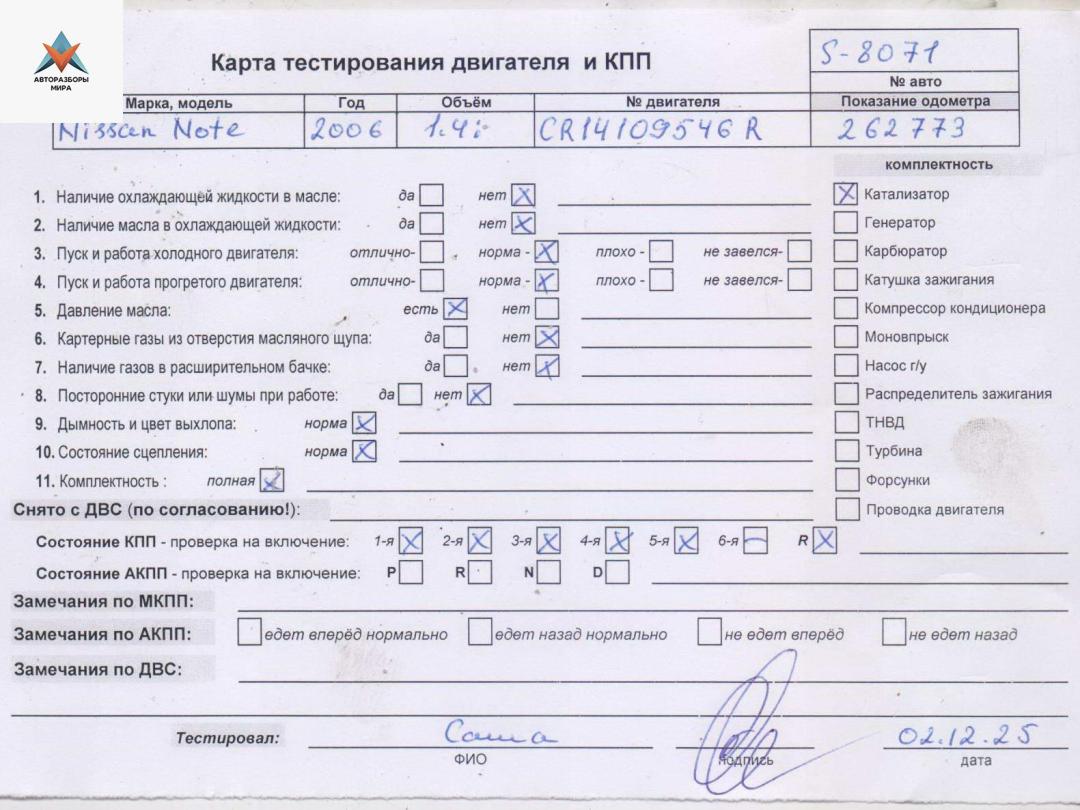 АВТОРАЗБОРЫ
МИРА
Карта тестирования двигателя и КПП
S-8071
№ авто
Марка, модель Год Объём № двигателя Показание одометра
Nissan Note 2006 1.4i CR14109546R 262773
комплектность
1. Наличие охлаждающей жидкости в масле: да нет X
X Катализатор
2. Наличие масла в охлаждающей жидкости: да нет X
Генератор
3. Пуск и работа холодного двигателя: отлично- норма - X плохо - не завелся-
Карбюратор
4. Пуск и работа прогретого двигателя: отлично- норма - X плохо - не завелся-
Катушка зажигания
5. Давление масла: есть X нет
Компрессор кондиционера
6. Картерные газы из отверстия масляного щупа: да нет X
Моновпрыск
7. Наличие газов в расширительном бачке: да нет X
Насос г/у
8. Посторонние стуки или шумы при работе: да нет X
Распределитель зажигания
9. Дымность и цвет выхлопа: норма X
ТНВД
10. Состояние сцепления: норма X
Турбина
11. Комплектность : полная X
Форсунки
Снято с ДВС (по согласованию!):
Проводка двигателя
Состояние КПП - проверка на включение: 1-я X 2-я X 3-я X 4-я X 5-я X 6-я – R X
Состояние АКПП - проверка на включение: P R N D
Замечания по МКПП:
Замечания по АКПП: едет вперёд нормально едет назад нормально не едет вперёд не едет назад
Замечания по ДВС:
Тестировал: Саша 02.12.25
ФИО подпись дата